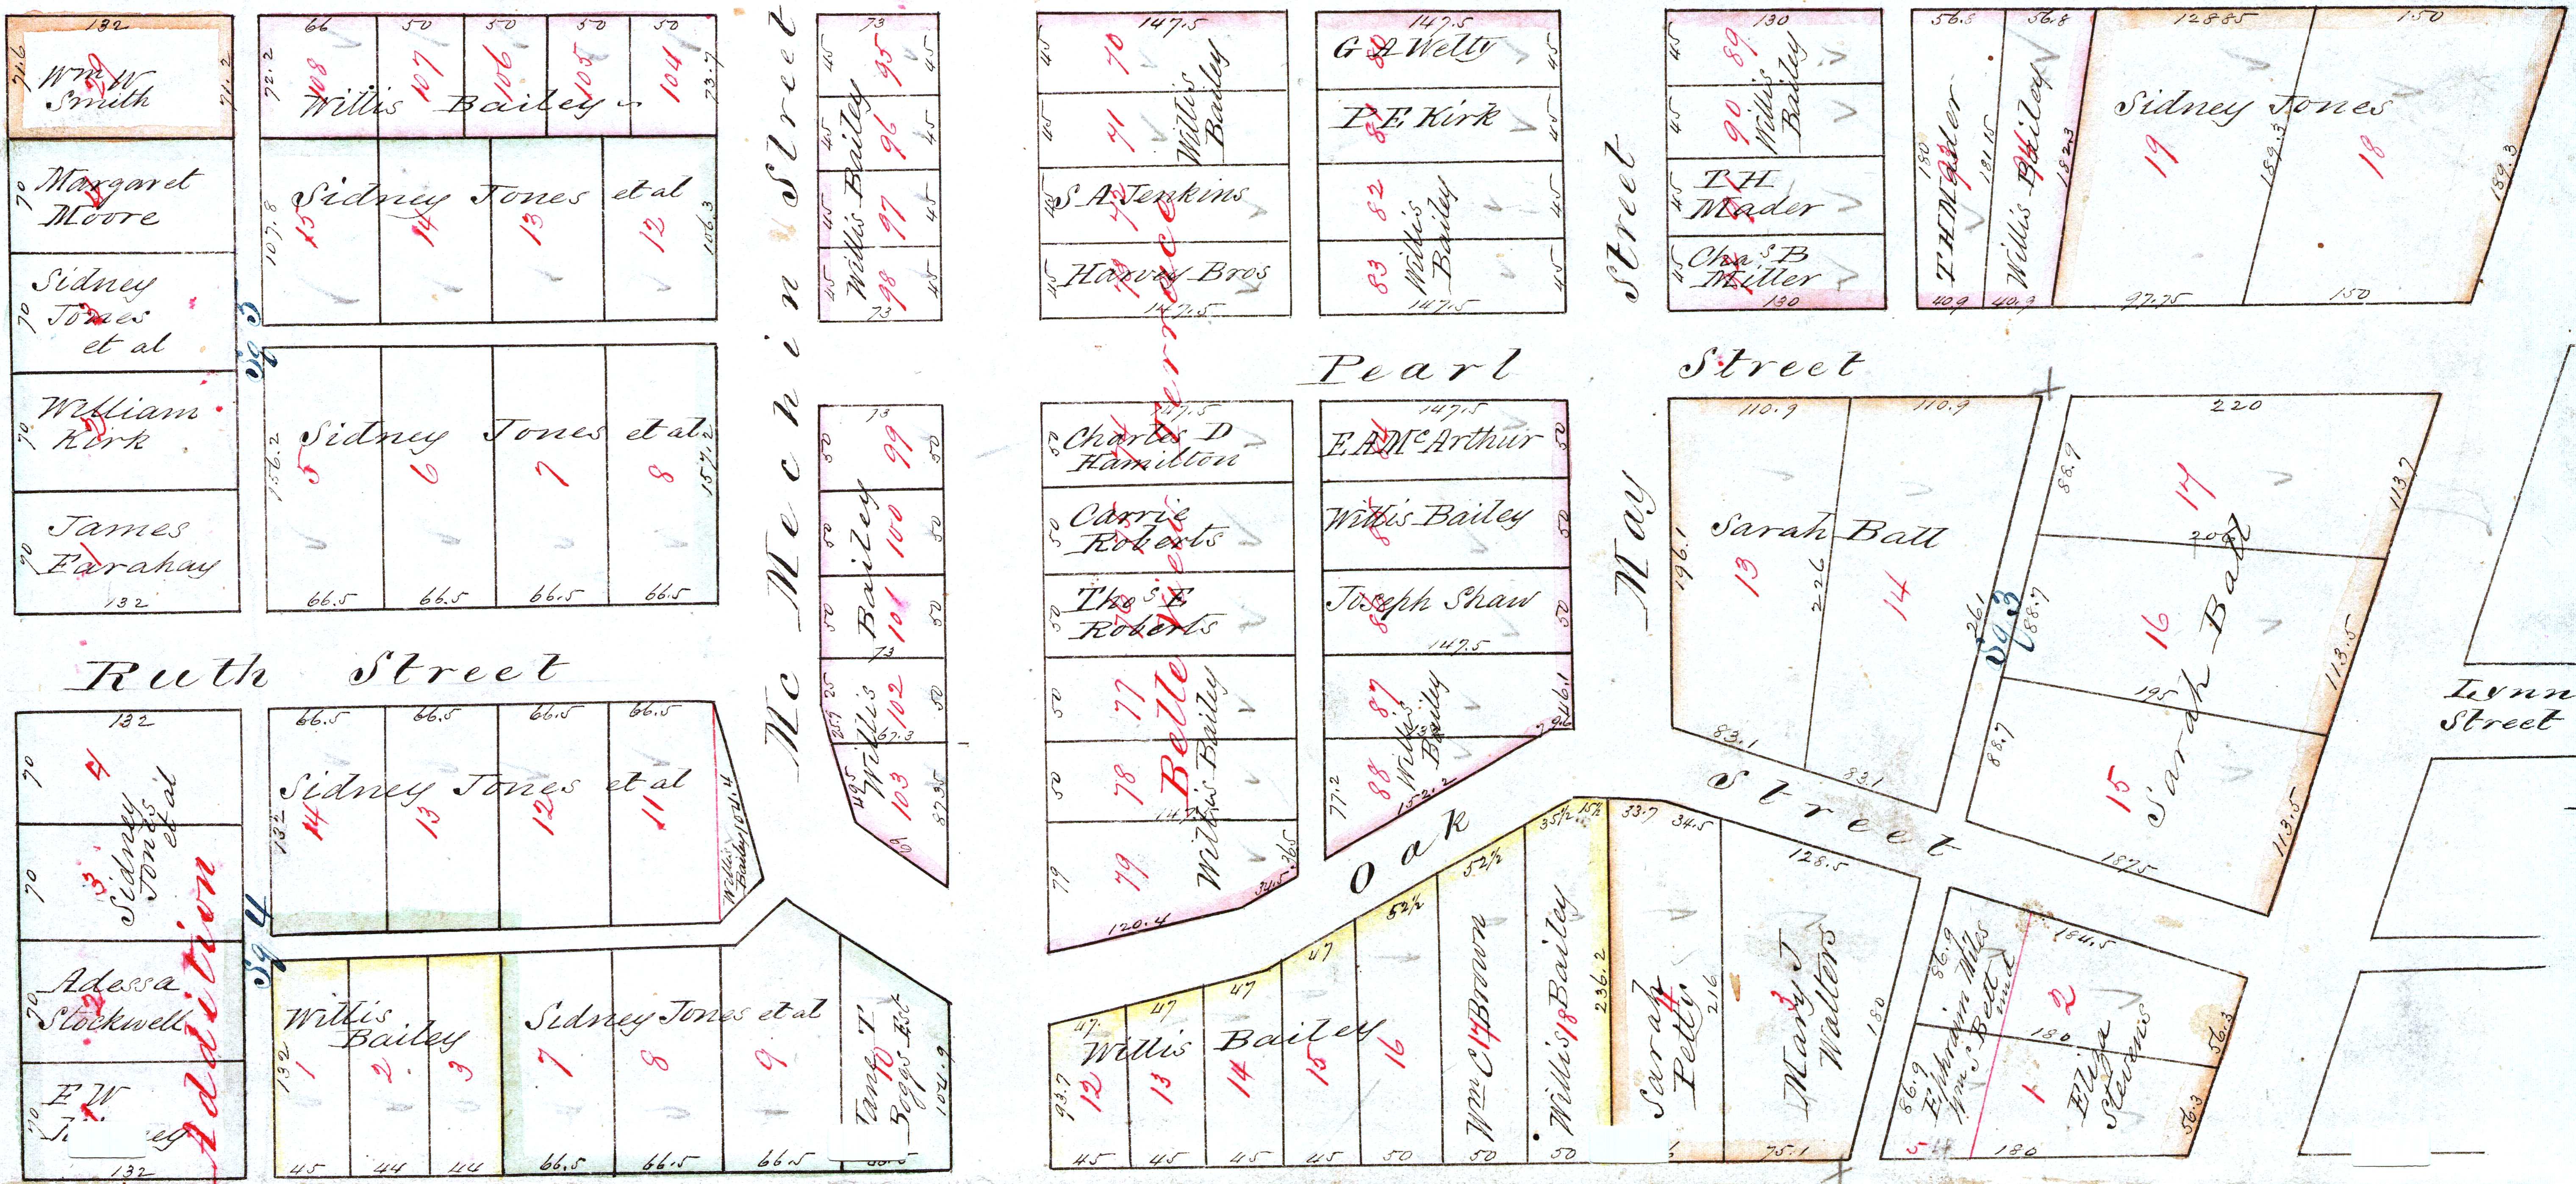 132
71.6
29
71.2
Wm W
Smith
70
Margaret
Moore
70
Sidney
Jones
et al
70
William
Kirk
90
James
Farahay
1
132
66 50 50 50 50
72.2
108 107 106 105 104
73.7
Willis Bailey
Sidney Jones et al
107.8
15 14 13 12
106.3
Sq 3
Sidney Jones et al
156.2
5 6 7 8
157.2
66.5 66.5 66.5 66.5
Ruth Street
132
70
4
70
3
Sidney
Jones
et al
70
2
Adessa
Stockwell
70
1
E W
132
Addition
Sq 4
66.5 66.5 66.5 66.5
Sidney Jones et al
132
14 13 12 11
Willis
Bailey 104.4
Willis
Bailey
132
1 2 3
45 44 44
Sidney Jones et al
7 8 9
66.5 66.5 66.5
Jane T
Boggs Est
10
104.9
McMechin Street
73
45 95 45
45 96 45
45 97 45
45 98 45
Willis Bailey
73
73
50 99 50
50 100 50
50 101 50
73
25 102 50
25.9
67.3
49.5 103 87.35
69
Willis Bailey
Belle View Terrace
147.5
45 70
45 71
Willis
Bailey
45 72
S A Jenkins
45 73
Harvey Bros
147.5
147.5
G A Welty
80 45
P E Kirk
81 45
82 45
83 45
Willis
Bailey
147.5
Pearl Street
147.5
50 74
Charles D
Hamilton
50 75
Carrie
Roberts
50 76
Thos E
Roberts
50 77
50 78
147.5
79 79
Willis Bailey
34.5 36.5
120.4
147.5
E A McArthur
84 50
Willis Bailey
85 50
Joseph Shaw
86 50
147.5
87 46.1
9.6
Willis
Bailey
77.2 88
152.2
May Street
130
45 89
45 90
Willis
Bailey
45 91
T H
Mader
45
Chas B
Miller
130
56.8 56.8 128.85 150
T H Mader
180
93
181.15
Willis Bailey
94
182.3
Sidney Jones
19 189.3 18
189.3
40.9 40.9 97.75 150
110.9 110.9
Sarah Ball
196.1
13 226 14
261
83.1 83.1
Sq 3
220
88.9 17 113.7
88.7 16 113.5
195
88.7 15 113.5
187.5
Sarah Ball
Lynn
Street
Oak Street
47 47 47 47 52½ 52½ 35½ 15½
Willis Bailey
93.7
12 13 14 15 16
45 45 45 45 50 50 50
Wm C Brown
17
Willis Bailey
18
236.2
33.7 34.5
Sarah
Petty
4
216
128.5
Mary J
Walters
3
180
75.1
86.9
86.9
Ephraim Wiles
Wm S Bell
und
184.5
2
180
56.3
1
Eliza
Stevens
56.3
5
180